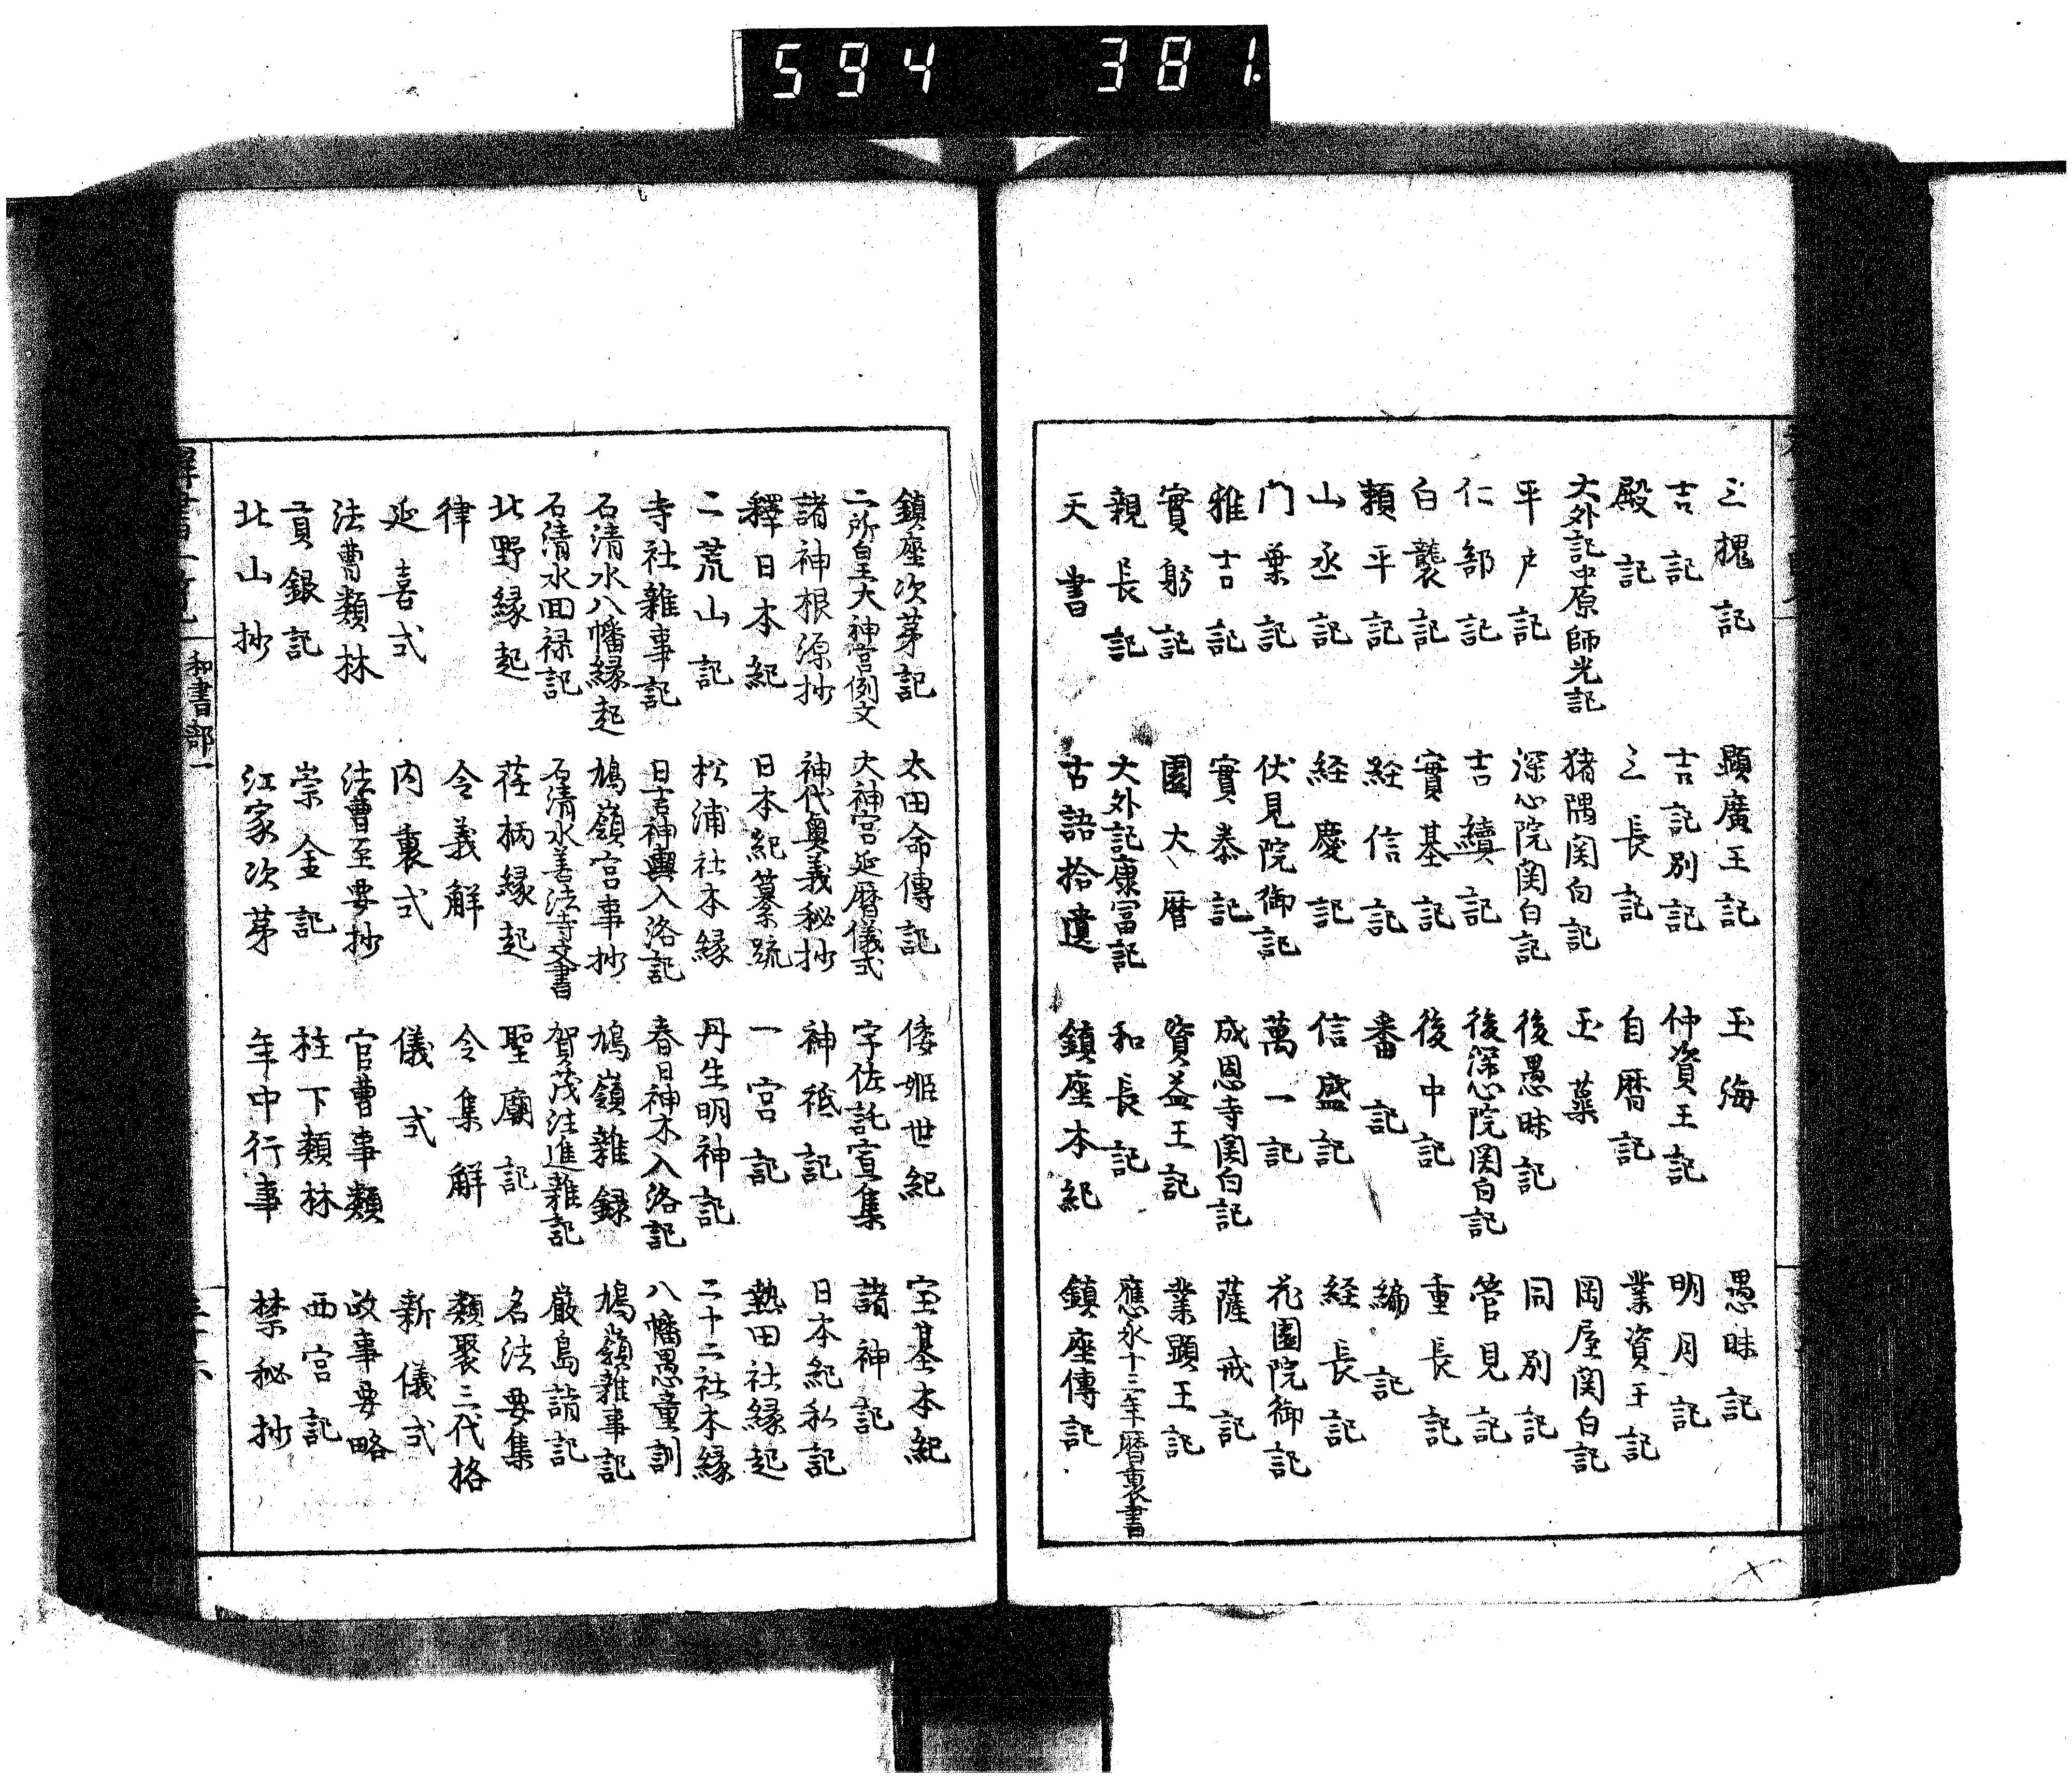 594 381.
三槐記 顕廣王記 玉海 愚昧記
吉記 吉記別記 仲資王記 明月記
殿記 三長記 自暦記 業資王記
大外記中原師光記 猪隅関白記 玉蘂 岡屋関白記
平戸記 深心院関白記 後愚昧記 同別記
仁部記 吉續記 後深心院関白記 管見記
白襲記 實基記 後中記 重長記
頼平記 経信記 番記 綸記
山丞記 経慶記 信盛記 経長記
门葉記 伏見院御記 萬一記 花園院御記
雅吉記 實泰記 成恩寺関白記 薩戒記
實躬記 園大暦 資益王記 業顕王記
親長記 大外記康富記 和長記 應永十三年暦裏書
天書 古語拾遺 鎮座本紀 鎮座傳記
鎮座次茅記 太田命傳記 倭姫世紀 宝基本紀
二所皇太神宮例文 大神宮延暦儀式 宇佐託宣集 諸神記
諸神根源抄 神代奥義秘抄 神祇記 日本紀私記
釋日本紀 日本紀纂疏 一宮記 熱田社縁起
二荒山記 松浦社本縁 丹生明神記 二十二社本縁
寺社雜事記 日吉神輿入洛記 春日神木入洛記 八幡愚童訓
石清水八幡縁起 鳩嶺宮事抄 鳩嶺雜録 鳩嶺雜事記
石清水回禄記 石清水善法寺文書 賀茂注進雜記 嚴島詣記
北野縁起 荏柄縁起 聖廟記 名法要集
律 令義解 令集解 類聚三代格
延喜式 内裏式 儀式 新儀式
法曹類林 法曹至要抄 官曹事類 政事要略
貢銀記 崇金記 柱下類林 西宮記
北山抄 江家次茅 年中行事 禁秘抄
和書部一